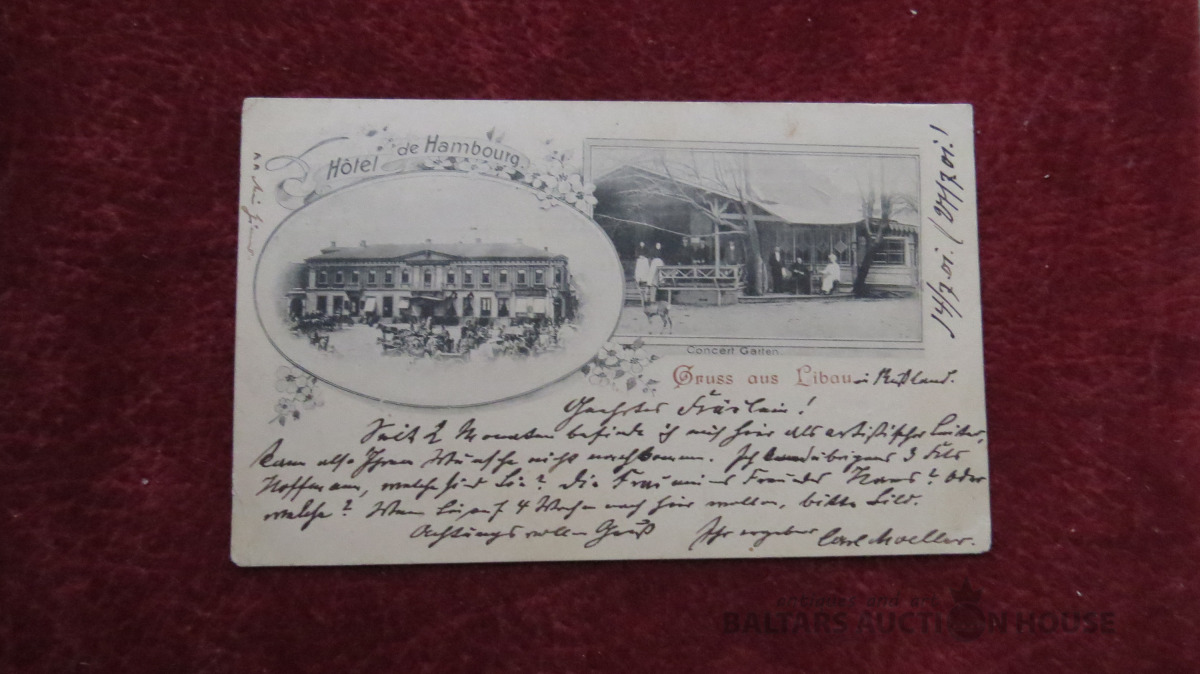 Hôtel de Hambourg.
Concert Garten.
Gruss aus Libau in Rußland.
14/7.01. (27/7.01.)
Geehrtes Fräulein!
Seit 2 Monaten befinde ich mich hier als artistischer Leiter,
kann also Ihrem Wunsche nicht nachkommen. Ich übrigens 3
Hoffmann, welche sind Sie? Die Frau Freundes Hans? oder
welche? Wenn Sie auf 4 Wochen nach hier wollen, bitte Bild.
Achtungsvollen Gruß Ihr ergebener Carl Moeller.
BALTARS AUCTION HOUSE